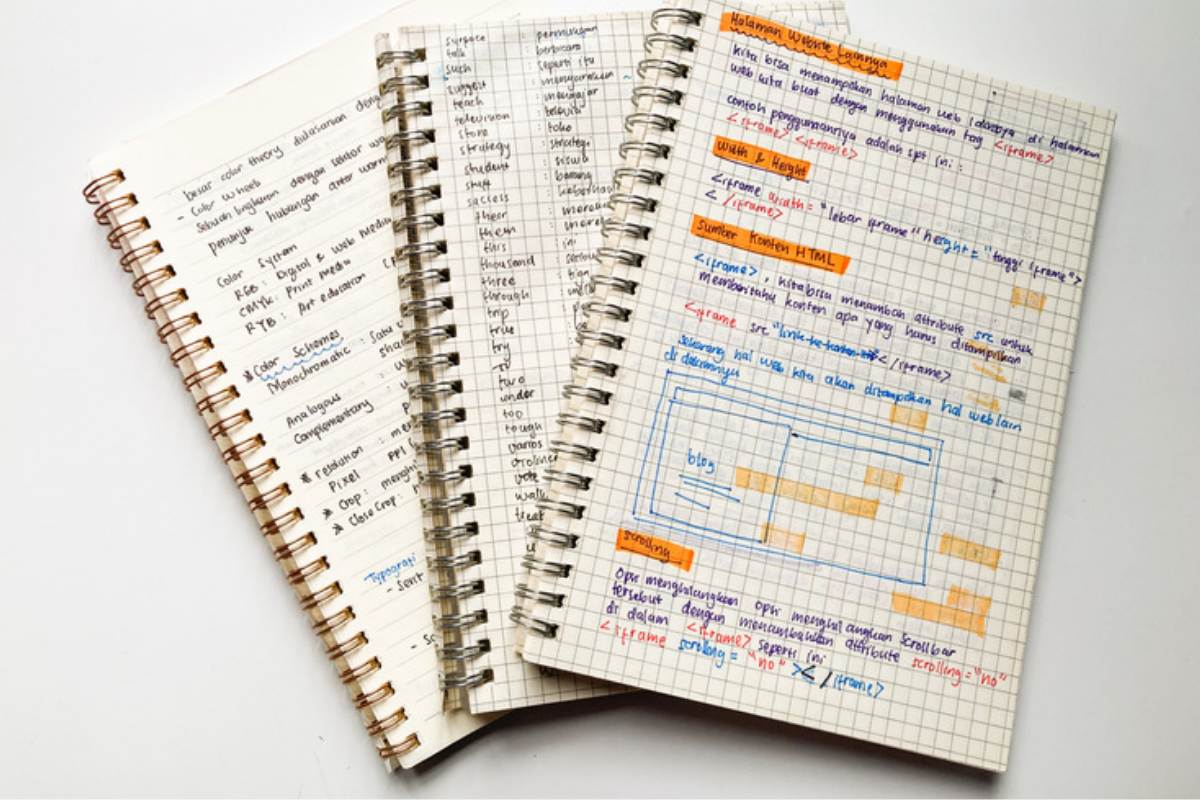 besar color theory dulasaman deng
- Color wheel
sebuah lingkaran dengan sektor wa
penunjuk hubungan antar warn
Color System
RGB : Digital & web media
CMYK : Print media
RYB : Art education
Color Schemes
Monochromatic : Satu
Analogous
Complementary
resolution
Pixel PPI
Crop : menghi
Close Crop :
Typografi
- Serif
surface : permukaan
talk : berbicara
such : seperti itu
suggest : menyarankan
teach : mengajar
television : televisi
store : toko
strategy : strategi
student : siswa
stuff : barang
success : keberhasi
their : mereka
them
this : ini
thousand : seribu
three : tiga
through
trip
true
try
two
under
too
tough
vote
walk
treat
Halaman Website Lainnya
kita bisa menampilkan halaman web lainnya di halaman
web kita buat dengan menggunakan tag <iframe>
contoh penggunaannya adalah spt ini :
<iframe> </iframe>
Width & Height
<iframe width= "lebar iframe" height= "tinggi iframe">
</iframe>
Sumber Konten HTML
<iframe>, kita bisa menambah attribute src untuk
memberitahu konten apa yang harus ditampilkan
<iframe src "link-ke-konten </iframe>
sekarang hal web kita akan ditampilkan hal web lain
di dalamnya
blog
Scrolling
Opsi menghilangkan opsi menghilangkan scrollbar
tersebut dengan menambahkan attribute scrolling="no"
di dalam <iframe> seperti ini
<iframe scrolling= "no" ></iframe>